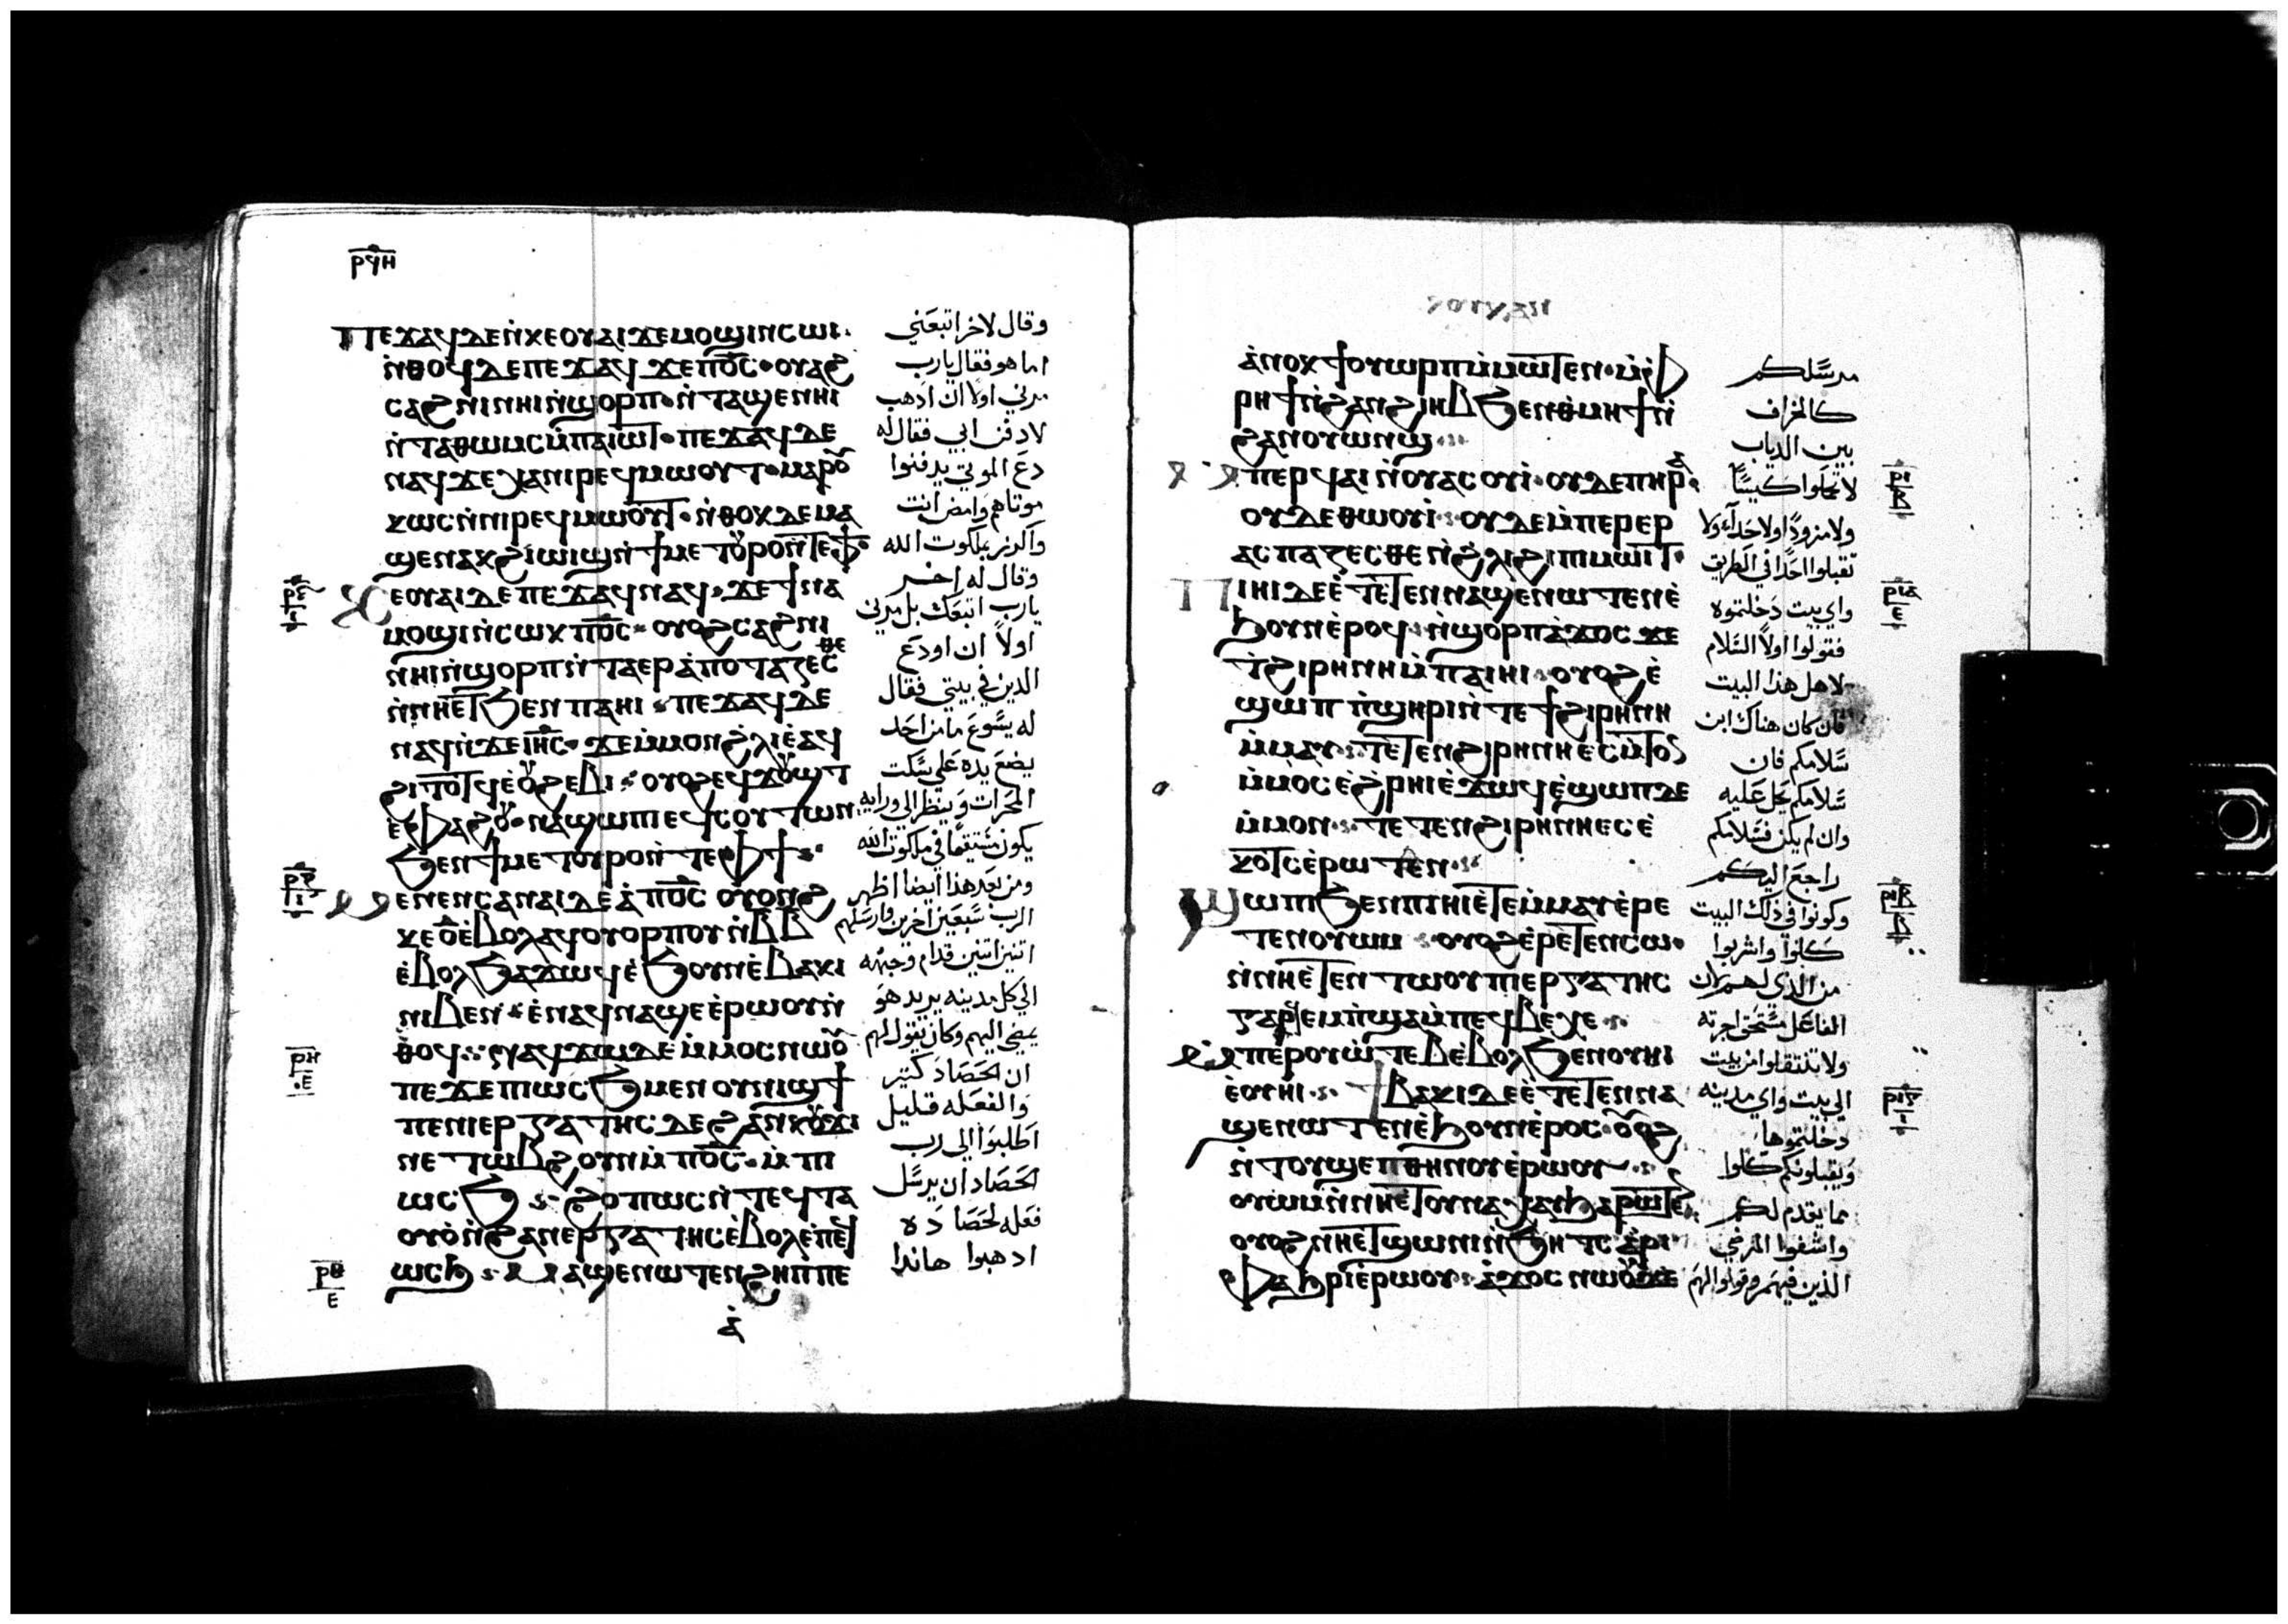 ⲣϥⲏ
ⲡⲉϫⲁϥ ⲇⲉ ⲛ̀ⲕⲉⲟⲩⲁⲓ ϫⲉ ⲙⲟϣⲓ ⲛ̀ⲥⲱⲓ·
ⲛ̀ⲑⲟϥ ⲇⲉ ⲡⲉϫⲁϥ ϫⲉ ⲡⲪⲤ ⲟⲩⲁϩ
ⲥⲁϩⲛⲓ ⲛⲏⲓ ⲛ̀ϣⲟⲣⲡ ⲛ̀ⲧⲁϣⲉⲛⲏⲓ
ⲛ̀ⲧⲁⲑⲱⲙⲥ ⲙ̀ⲡⲁⲓⲱⲧ· ⲡⲉϫⲁϥ ⲇⲉ
ⲛⲁϥ ϫⲉ ⲭⲁ ⲛⲓⲣⲉϥⲙⲱⲟⲩⲧ· ⲙⲁⲣⲟⲩ
ⲕⲱⲥ ⲛ̀ⲛⲓⲣⲉϥⲙⲱⲟⲩⲧ· ⲛ̀ⲑⲟⲕ ⲇⲉ ⲙⲁ
ϣⲉⲛⲁⲕ ϩⲓⲱⲓϣ ⲛ̀ϯⲙⲉⲧⲟⲩⲣⲟ ⲛ̀ⲧⲉⲫϯ·
ⲕⲉⲟⲩⲁⲓ ⲇⲉ ⲡⲉϫⲁϥ ⲛⲁϥ· ϫⲉ ϯⲛⲁ
ⲙⲟϣⲓ ⲛ̀ⲥⲱⲕ ⲡⲟ̅ⲥ̅· ⲟⲩⲟϩ ⲥⲁϩⲛⲓ
ⲛⲏⲓ ⲛ̀ϣⲟⲣⲡ ⲛ̀ⲧⲁⲉⲣⲁ̀ⲡⲟⲧⲁⲍⲉⲥⲑⲉ
ⲛ̀ⲛⲏⲉⲧϧⲉⲛ ⲡⲁⲏⲓ· ⲡⲉϫⲁϥ ⲇⲉ
ⲛⲁϥ ⲛ̀ϫⲉ ⲓⲏ̅ⲥ̅· ϫⲉ ⲙ̀ⲙⲟⲛ ϩⲗⲓ ⲉ̀ⲁϥ
ϩⲓⲧⲟⲧϥ ⲉ̀ⲟⲩϩⲉⲃⲓ· ⲟⲩⲟϩ ⲉϥϫⲟⲩϣⲧ
ⲉ̀ⲫⲁϩⲟⲩ· ⲛⲁϣⲱⲡⲓ ⲉϥⲥⲟⲩⲧⲱⲛ
ϧⲉⲛ ϯⲙⲉⲧⲟⲩⲣⲟ ⲛ̀ⲧⲉⲫϯ·
ⲙⲉⲛⲉⲛⲥⲁ ⲛⲁⲓ ⲇⲉ ⲁ̀ ⲡⲟ̅ⲥ̅ ⲟⲩⲟⲛϩ
ⲕⲉⲟ̅ ⲉ̀ⲃⲟⲗ ⲁϥⲟⲩⲟⲣⲡⲟⲩ ⲛ̀ⲃⲃ
ⲉ̀ⲃⲟⲗ ϧⲁϫⲱϥ ⲉ̀ϧⲟⲩⲛ ⲉ̀ⲃⲁⲕⲓ
ⲛⲓⲃⲉⲛ· ⲉ̀ⲛⲁϥⲛⲁϣⲉ ⲉ̀ⲣⲱⲟⲩ ⲛ̀
ⲑⲟϥ· ⲛⲁϥϫⲱ ⲇⲉ ⲙ̀ⲙⲟⲥ ⲛⲱⲟⲩ
ϫⲉ ⲡⲱⲥϧ ⲙⲉⲛ ⲟⲩⲛⲓϣϯ
ⲡⲉ ⲛⲓⲉⲣⲅⲁⲧⲏⲥ ⲇⲉ ϩⲁⲛⲕⲟⲩϫⲓ
ⲛⲉ ⲧⲱⲃϩ ⲟⲩⲛ ⲙ̀ⲡⲟ̅ⲥ̅· ⲙ̀ⲡⲓ
ⲱⲥϧ· ϩⲟⲡⲱⲥ ⲛ̀ⲧⲉϥⲧⲁ
ⲟⲩⲟ̀ ⲛ̀ϩⲁⲛⲉⲣⲅⲁⲧⲏⲥ ⲉ̀ⲃⲟⲗ ⲉ̀ⲡⲉϥ
ⲱⲥϧ· ⲙⲁϣⲉⲛⲱⲧⲉⲛ ϩⲏⲡⲡⲉ
ⲁ̀
وقال لاخر اتبعني
اما هو فقال يارب
مرني اولا ان اذهب
لادفن ابي فقال له
دع الموتي يدفنوا
موتاهم وامض انت
واكرز بملكوت الله
وقال له اخر
يارب اتبعك بل مرني
اولا ان اودع
الذين في بيتي فقال
له يسوع ما من احد
يضع يده علي سكت
المحرات وينظر الي ورايه
يكون مستيقما في ملكوت الله
ومن بعد هذا ايضا اظهر
الرب سبعين اخرين وارسلهم
اتنين اتنين قدام وجهه
الي كل مدينه يريد هو
يمضي اليهم وكان يقول لهم
ان الحصاد كتير
والفعله قليل
اطلبوا الي رب
الحصاد ان يرسل
فعله لحصاده
اذهبوا هاندا
ⲁ̀ⲛⲟⲕ ϯⲟⲩⲱⲣⲡ ⲙ̀ⲙⲱⲧⲉⲛ· ⲙ̀ⲫ
ⲣⲏϯ ⲛ̀ϩⲁⲛϩⲓⲏⲃ ϧⲉⲛ ⲑⲙⲏϯ ⲛ̀
ϩⲁⲛⲟⲩⲱⲛϣ·
ⲙ̀ⲡⲉⲣϥⲁⲓ ⲛ̀ⲟⲩⲁⲥⲟⲩⲓ̀· ⲟⲩⲇⲉ ⲡⲏⲣⲁ·
ⲟⲩⲇⲉ ⲑⲱⲟⲩⲓ̀· ⲟⲩⲇⲉ ⲙ̀ⲡⲉⲣⲉⲣ
ⲁⲥⲡⲁⲍⲉⲥⲑⲉ ⲛ̀ϩ̀ⲗⲓ ϩⲓ ⲡⲓⲙⲱⲓⲧ·
ⲡⲓⲏⲓ ⲇⲉ ⲉ̀ⲧⲉⲧⲉⲛⲛⲁϣⲉⲛⲱⲧⲉⲛ ⲉ̀
ϧⲟⲩⲛ ⲉ̀ⲣⲟϥ· ⲛ̀ϣⲟⲣⲡ ⲁ̀ϫⲟⲥ ϫⲉ
ⲧ̀ϩⲓⲣⲏⲛⲏ ⲙ̀ⲡⲁⲓⲏⲓ· ⲟⲩⲟϩ ⲉ̀
ϣⲱⲡ ⲛ̀ϣⲏⲣⲓ ⲛ̀ⲧⲉ ϯϩⲓⲣⲏⲛⲏ
ⲙ̀ⲙⲁⲩ· ⲧⲉⲧⲉⲛϩⲓⲣⲏⲛⲏ ⲉⲥⲙ̀ⲧⲟⲛ
ⲙ̀ⲙⲟⲥ ⲉ̀ϩ̀ⲣⲏⲓ ⲉ̀ϫⲱϥ ⲉ̀ϣⲱⲡ ⲇⲉ
ⲙ̀ⲙⲟⲛ· ⲧⲉⲧⲉⲛϩⲓⲣⲏⲛⲏ ⲉⲥⲉ̀
ⲕⲟⲧⲥ ⲉ̀ⲣⲱⲧⲉⲛ·
ϣⲱⲡⲓ ϧⲉⲛ ⲡⲓⲏⲓ ⲉ̀ⲧⲉⲙ̀ⲙⲁⲩ ⲉ̀ⲣⲉ
ⲧⲉⲛⲟⲩⲱⲙ· ⲟⲩⲟϩ ⲉ̀ⲣⲉⲧⲉⲛⲥⲱ·
ⲛ̀ⲛⲏⲉⲧⲉⲛⲧⲱⲟⲩ ⲡⲓⲉⲣⲅⲁⲧⲏⲥ
ⲅⲁⲣ ϥⲉⲙⲡ̀ϣⲁ ⲙ̀ⲡⲉϥⲃⲉⲭⲉ·
ⲙ̀ⲡⲉⲣⲟⲩⲱⲧⲉⲃ ⲉ̀ⲃⲟⲗ ϧⲉⲛ ⲟⲩⲏⲓ
ⲉ̀ⲟⲩⲏⲓ· ϯⲃⲁⲕⲓ ⲇⲉ ⲉ̀ⲧⲉⲧⲉⲛⲛⲁ
ϣⲉⲛⲱⲧⲉⲛ ⲉ̀ϧⲟⲩⲛ ⲉ̀ⲣⲟⲥ· ⲟⲩⲟϩ
ⲛ̀ⲧⲟⲩϣⲉⲡⲑⲏⲛⲟⲩ ⲉ̀ⲣⲱⲟⲩ·
ⲟⲩⲱⲙ ⲛ̀ⲛⲏⲉⲧⲟⲩⲛⲁⲭⲁ ϧⲁⲣⲱⲧⲉⲛ
ⲟⲩⲟϩ ⲛⲏⲉⲧϣⲱⲛⲓ ⲛ̀ϧⲏⲧⲥ ⲁ̀ⲣⲓ
ⲫⲁϧⲣⲓ ⲉ̀ⲣⲱⲟⲩ· ⲁ̀ϫⲟⲥ ⲛⲱⲟⲩ ϫⲉ
مرسلكم
كالخراف
بين الدياب
لا تحلوا كيسا
ولا مزودا ولا حداء ولا
تقبلوا احدا في الطريق
واي بيت دخلتموه
فقولوا اولا السلام
لاهل هذا البيت
فان كان هناك ابن
سلامكم فان
سلامكم يحل عليه
وان لم يكن فسلامكم
راجع اليكم
وكونوا في ذلك البيت
كلوا واشربوا
من الذي لهم لان
الفاعل مستحق اجرته
ولا تنتقلوا من بيت
الي بيت واي مدينه
دخلتموها
ويقبلونكم كلوا
مما يقدم لكم
واشفوا المرضي
الذين فيهم وقولوا لهم